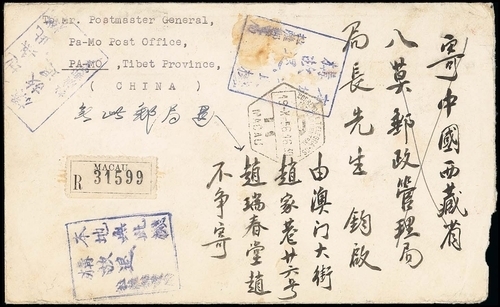 To Mr. Postmaster General,
Pa-Mo Post Office,
PA-MO ,Tibet Province,
( CHINA )
寄中國西藏省
八莫郵政管理局
局長先生 鈞啟
由澳门大街
趙家巷廿六号
趙瑞春堂趙
不争寄
無此郵局退
MACAU
R 31599
MACAU
本地無此機
構故退